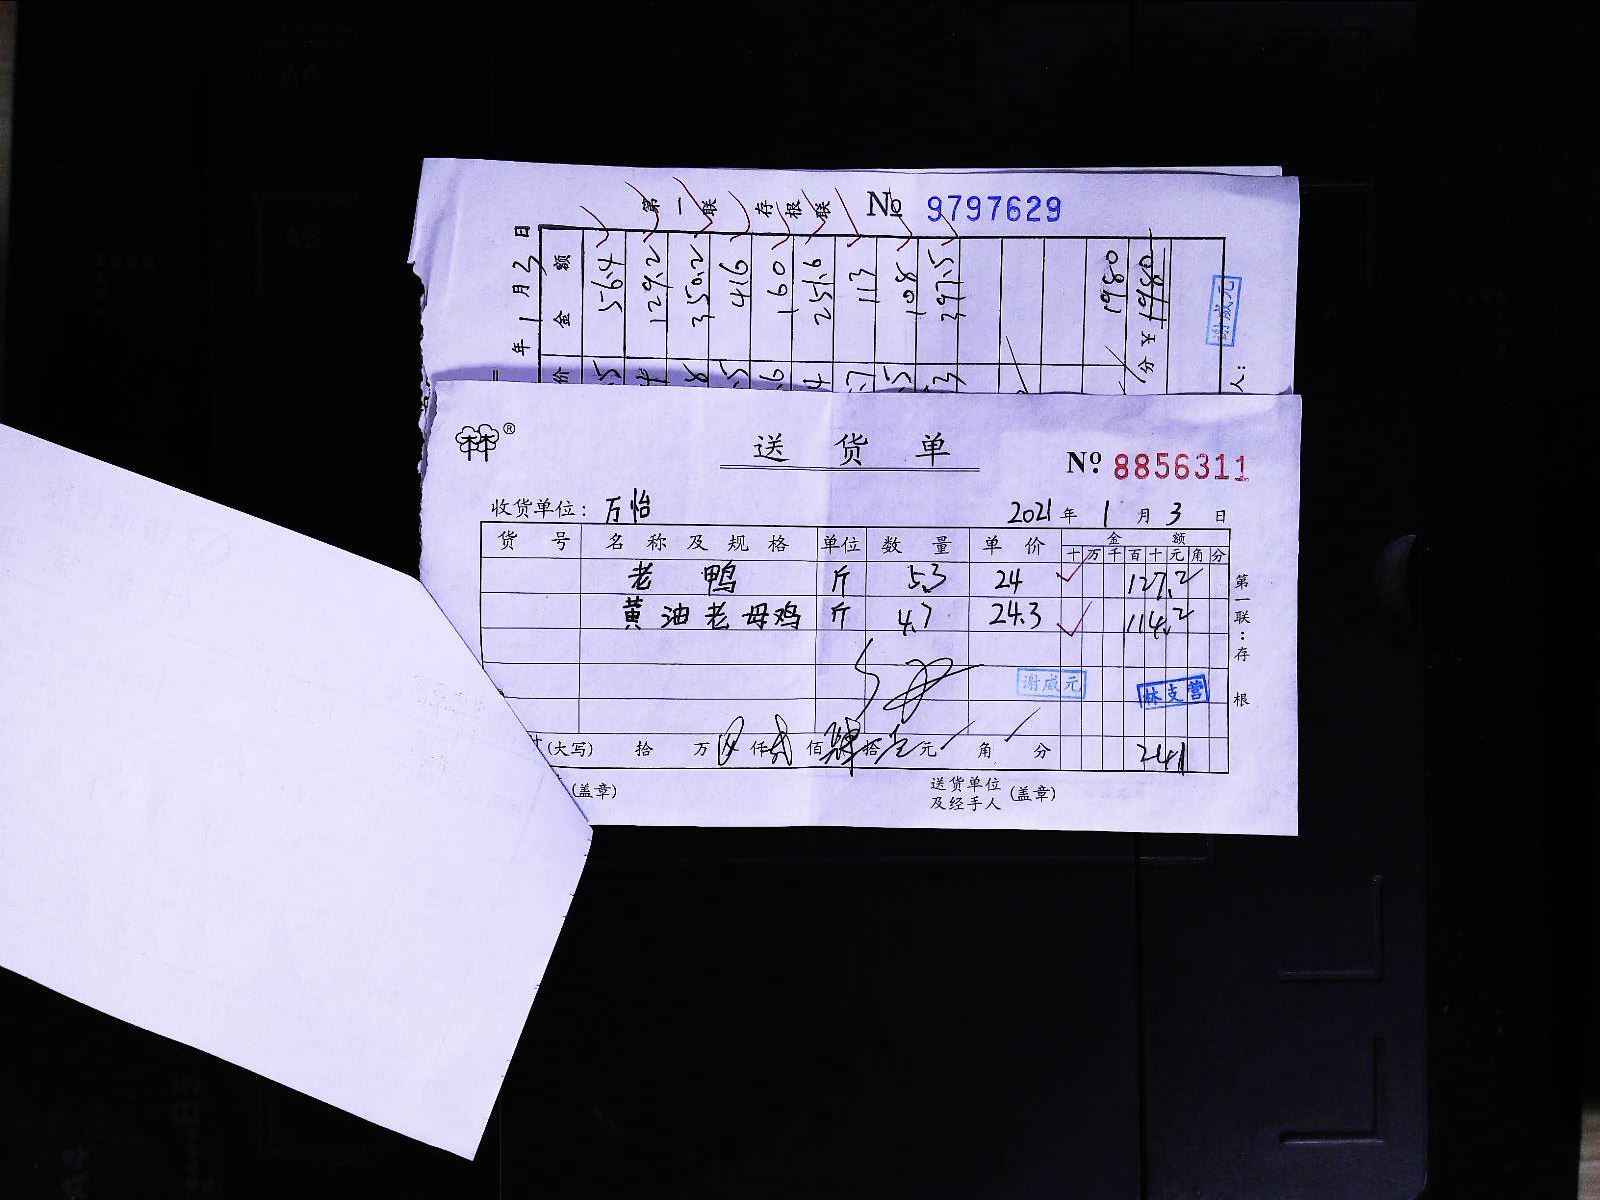 第一联 存根联 № 9797629
年 1 月 3 日
金额 56.4 129.2 350.2 416 160 251.6 113 108 397.5 1980
分 ¥ 1980
谢威元
人:
林®
送货单
№ 8856311
收货单位: 万怡 2021 年 1 月 3 日
货号 名称及规格 单位 数量 单价 金额
十万千百十元角分
老鸭 斤 5.3 24 127.2
黄油老母鸡 斤 4.7 24.3 114.2
谢威元 林支营
(大写) 拾 万 仟 贰 佰 肆 拾 壹 元 角 分 241
(盖章) 送货单位及经手人 (盖章)
第一联:存根